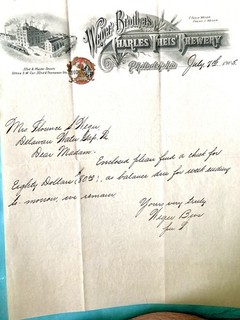 Weger Brothers
CHARLES THEIS' BREWERY
Philadelphia
July 7th 1905
Mrs Florence S Weger
Delaware Water Gap Pa
Dear Madam.
Enclosed please find a check for
Eighty Dollars ($80 00/xx), as balance due for week ending
to-morrow, we remain,
Yours very truly,
Weger Bros